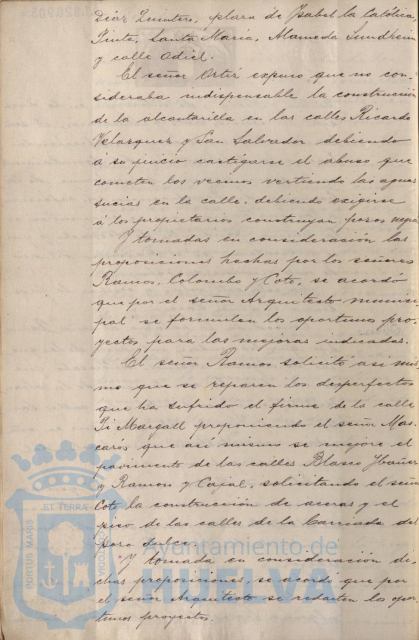 Díaz Quintero, plaza de Ysabel la Católica
Tinte, Santa María, Alameda Sundheim
y calle Odiel.
El señor Ortiz expuso que no con-
sideraba indispensable la construcción
de la alcantarilla en las calles Ricardo
Velazquez y San Salvador debiendo
á su juicio castigarse el abuso que
cometen los vecinos vertiendo las aguas
sucias en la calle, debiendo exigirse
á los propietarios construyan pozos negros
Y tomadas en consideración las
proposiciones hechas por los señores
Ramos, Colombo y Coto, se acordó
que por el señor Arquitecto munici-
pal se formulen los oportunos pro-
yectos para las mejoras indicadas.
El señor Ramos solicitó asi mis-
mo que se reparen los desperfectos
que ha sufrido el firme de la calle
Pi Margall proponiendo el señor Mas-
carós que así mismo se mejore el
pavimento de las calles Blasco Ybañez
y Ramon y Cajal, solicitando el señor
Coto la construcción de aceras y el
piso de las calles de la Barriada del
Pozo Dulce.
Y tomada en consideración di-
chas proposiciones, se acordó que por
el señor Arquitecto se redacten los opor-
tunos proyectos.
Ayuntamiento de
PORTUS MARIS
ET TERRAE